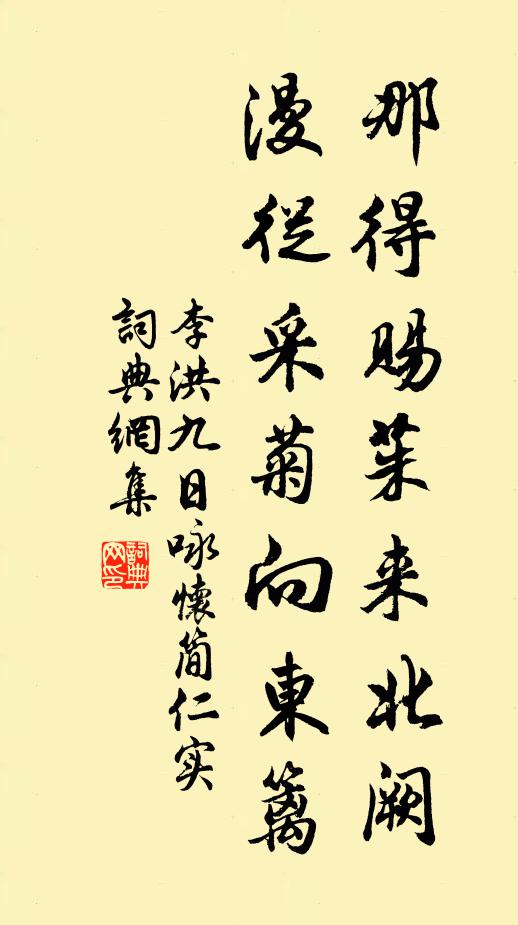 那得賜茱来北阙
漫從采菊向東篱
李洪九日咏懷简仁实
詞典網集
詞典网印